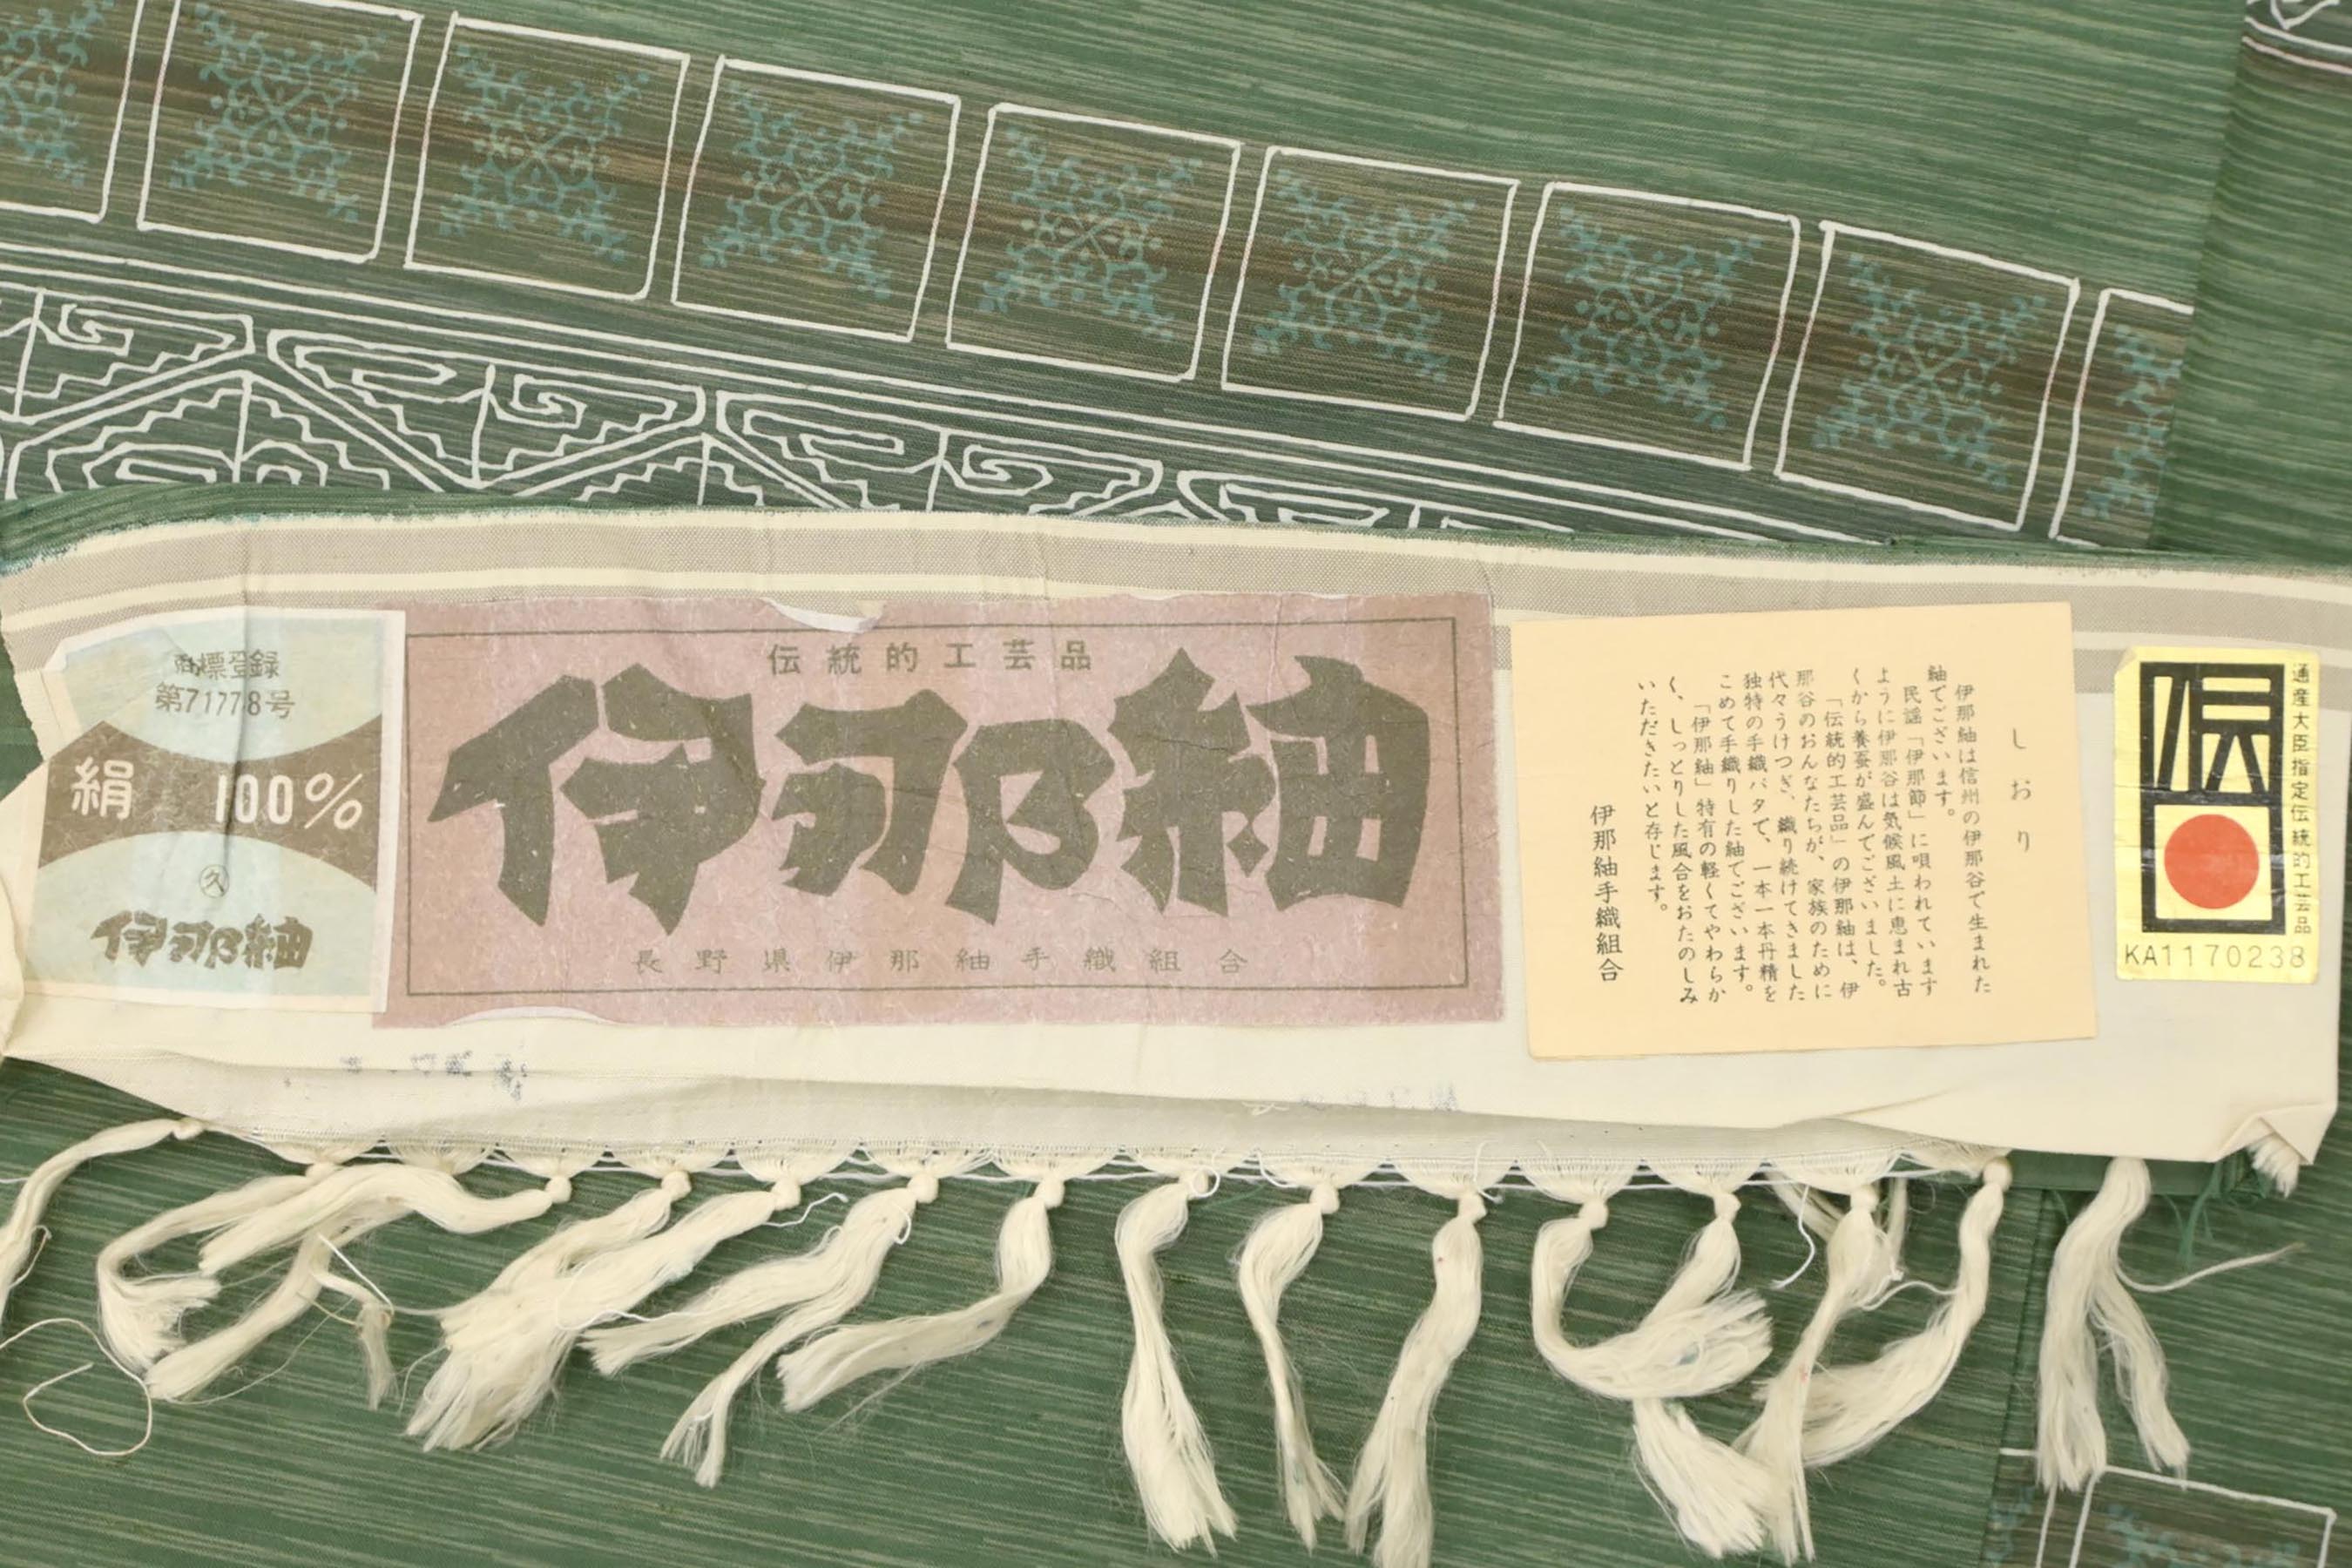 商標登録
第71778号
絹 100%
久
伊那紬
伝統的工芸品
伊那紬
長野県伊那紬手織組合
しおり
伊那紬は信州の伊那谷で生まれた
紬でございます。
民謡「伊那節」に唄われています
ように伊那谷は気候風土に恵まれ古
くから養蚕が盛んでございました。
「伝統的工芸品」の伊那紬は、伊
那谷のおんなたちが、家族のために
代々うけつぎ、織り続けてきました
独特の手織バタで、一本一本丹精を
こめて手織りした紬でございます。
「伊那紬」特有の軽くてやわらか
く、しっとりした風合をおたのしみ
いただきたいと存じます。
伊那紬手織組合
伝
通産大臣指定伝統的工芸品
KA1170238